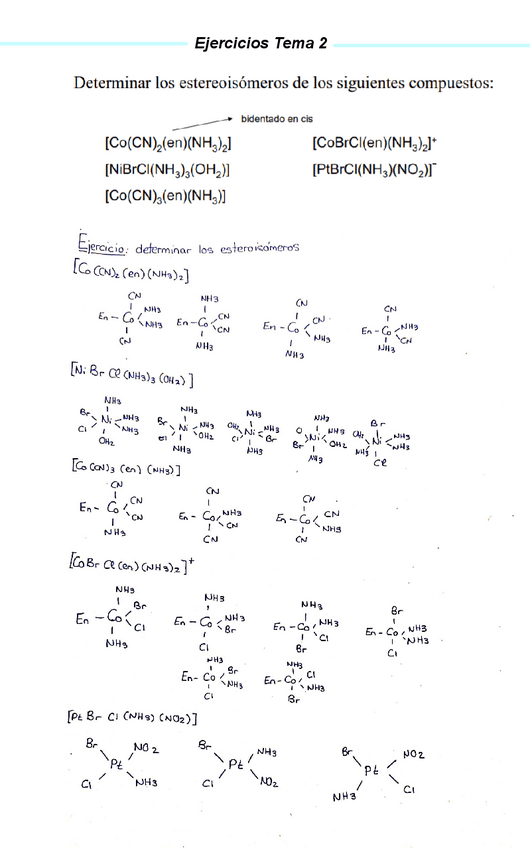 Ejercicios Tema 2
Determinar los estereoisómeros de los siguientes compuestos:
bidentado en cis
[Co(CN)₂(en)(NH₃)₂] [CoBrCl(en)(NH₃)₂]⁺
[NiBrCl(NH₃)₃(OH₂)] [PtBrCl(NH₃)(NO₂)]⁻
[Co(CN)₃(en)(NH₃)]
Ejercicio: determinar los esteroisómeros
[Co(CN)₂(en)(NH₃)₂]
CN NH3 CN CN
En - Co NH3 NH3 En - Co CN CN En - Co CN NH3 En - Co NH3 CN
CN NH3 NH3 NH3
[Ni Br Cl (NH₃)₃ (OH₂)]
NH3 NH3 NH3 NH3 Br
Br Cl Ni NH3 NH3 Br Ni NH3 OH2 OH2 Cl Ni NH3 Br Br Ni NH3 OH2 OH2 NH3 Ni NH3 NH3
OH2 NH3 NH3 NH3 Cl
[Co (CN)₃ (en) (NH₃)]
CN CN CN
En - Co CN CN En - Co NH3 CN En - Co CN NH3
NH3 CN CN
[CoBr Cl (en) (NH₃)₂]⁺
NH3 NH3 NH3 Br
En - Co Br Cl En - Co NH3 Br En - Co NH3 Cl En - Co NH3 NH3
NH3 Cl Br Cl
NH3 NH3
En - Co Br NH3 En - Co Cl NH3
Cl Br
[Pt Br Cl (NH₃) (NO₂)]
Br NO2 Br NH3 Br NO2
Pt Pt Pt
Cl NH3 Cl NO2 NH3 Cl